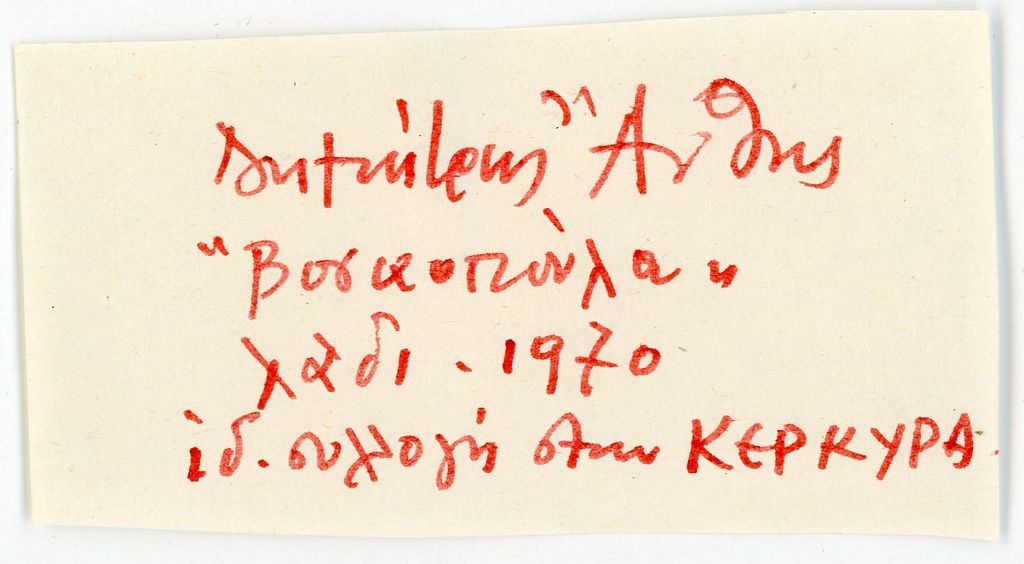 Δημήτρης Ἄνθης
"Βοσκοπούλα"
λάδι . 1970
ἰδ. συλλογή στην ΚΕΡΚΥΡΑ.